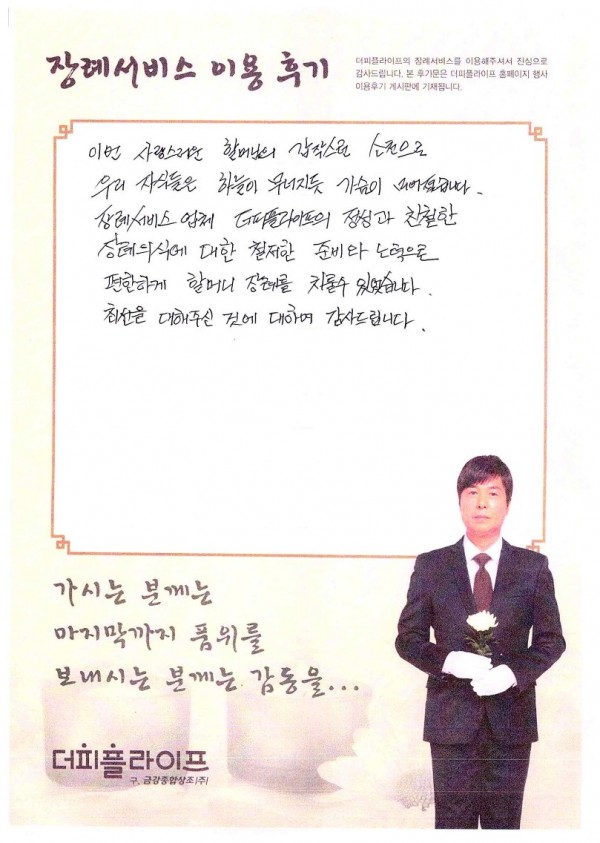 장례서비스 이용 후기
더피플라이프의 장례서비스를 이용해주셔서 진심으로
감사드립니다. 본 후기문은 더피플라이프 홈페이지 행사
이용후기 게시판에 기재됩니다.
이번 사랑스러운 할머님의 갑작스런 소천으로
우리 자식들은 하늘이 무너지듯 가슴이 미어집니다.
장례서비스 업체 더피플라이프의 정성과 친절한
장례의식에 대한 철저한 준비와 노력으로
편안하게 할머니 장례를 치룰수 있었습니다.
최선을 대해주신 것에 대하여 감사드립니다.
가시는 분께는
마지막까지 품위를
보내시는 분께는 감동을...
더피플라이프
구. 금강종합상조(주)